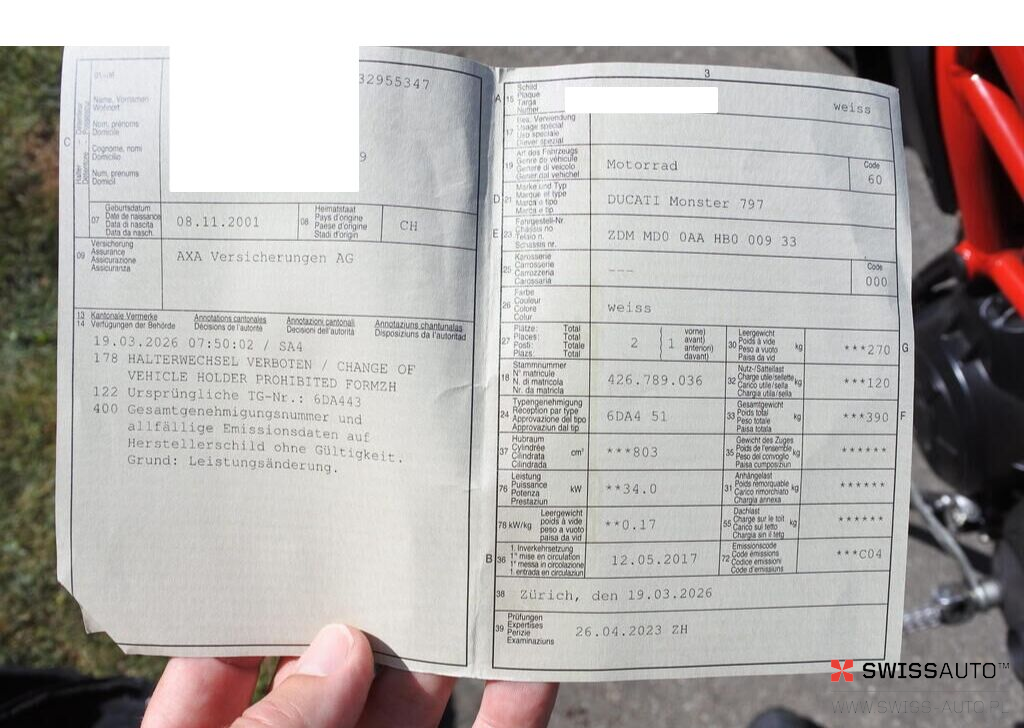 32955347
C
01-06
Name, Vornamen
Wohnort
Nom, prénoms
Domicile
Cognome, nomi
Domicilio
Num, prenums
Domicil
9
07 Geburtsdatum
Date de naissance
Data di nascita
Data da nasch.
08.11.2001
08 Heimatstaat
Pays d'origine
Paese d'origine
Stadi d'origin
CH
09 Versicherung
Assurance
Assicurazione
Assicuranza
AXA Versicherungen AG
13 Kantonale Vermerke Annotations cantonales Annotazioni cantonali Annotaziuns chantunalas
14 Verfügungen der Behörde Décisions de l'autorité Decisioni dell'autorità Disposiziuns da l'autoritad
19.03.2026 07:50:02 / SA4
178 HALTERWECHSEL VERBOTEN / CHANGE OF
VEHICLE HOLDER PROHIBITED FORMZH
122 Ursprüngliche TG-Nr.: 6DA443
400 Gesamtgenehmigungsnummer und
allfällige Emissionsdaten auf
Herstellerschild ohne Gültigkeit.
Grund: Leistungsänderung.
3
A 15 Schild
Plaque
Targa
Numer
weiss
17 Bes. Verwendung
Usage spécial
Uso speciale
Diever spezial
19 Art des Fahrzeugs
Genre de véhicule
Genere di veicolo
Gener dal vehichel
Motorrad
Code
60
D 21 Marke und Typ
Marque et type
Marca e tipo
Marca e tip
DUCATI Monster 797
E 23 Fahrgestell-Nr.
Châssis no
Telaio n.
Schassis nr.
ZDM MD0 0AA HB0 009 33
25 Karosserie
Carrosserie
Carrozzeria
Carossaria
---
Code
000
26 Farbe
Couleur
Colore
Colur
weiss
27 Plätze: Total
Places: Total
Posti: Totale
Plazs: Total
2
1
vorne)
avant)
anteriori)
davant)
30 Leergewicht
Poids à vide
Peso a vuoto
Paisa da vid
kg
***270
G
18 Stammnummer
N° matricule
N. di matricola
Nr. da matricla
426.789.036
32 Nutz-/Sattellast
Charge utile/sellette
Carico utile/sella
Chargia utila/sella
kg
***120
24 Typengenehmigung
Réception par type
Approvazione del tipo
Approvaziun dal tip
6DA4 51
33 Gesamtgewicht
Poids total
Peso totale
Paisa totala
kg
***390
F
37 Hubraum
Cylindrée
Cilindrata
Cilindrada
cm³
***803
35 Gewicht des Zuges
Poids de l'ensemble
Peso del convoglio
Paisa cumposiziun
kg
******
76 Leistung
Puissance
Potenza
Prestaziun
kW
**34.0
31 Anhängelast
Poids remorquable
Carico rimorchiato
Chargia annexa
kg
******
78 kW/kg
Leergewicht
poids à vide
peso a vuoto
paisa da vid
**0.17
55 Dachlast
Charge sur le toit
Carico sul tetto
Chargia sin il tetg
kg
******
B 36 1. Inverkehrsetzung
1re mise en circulation
1a messa in circolazione
1. entrada en circulaziun
12.05.2017
72 Emissionscode
Code émissions
Codice emissioni
Code d'emissiuns
***C04
38 Zürich, den 19.03.2026
39 Prüfungen
Expertises
Perizie
Examinaziuns
26.04.2023 ZH
SWISSAUTO™
WWW.SWISS-AUTO.PL